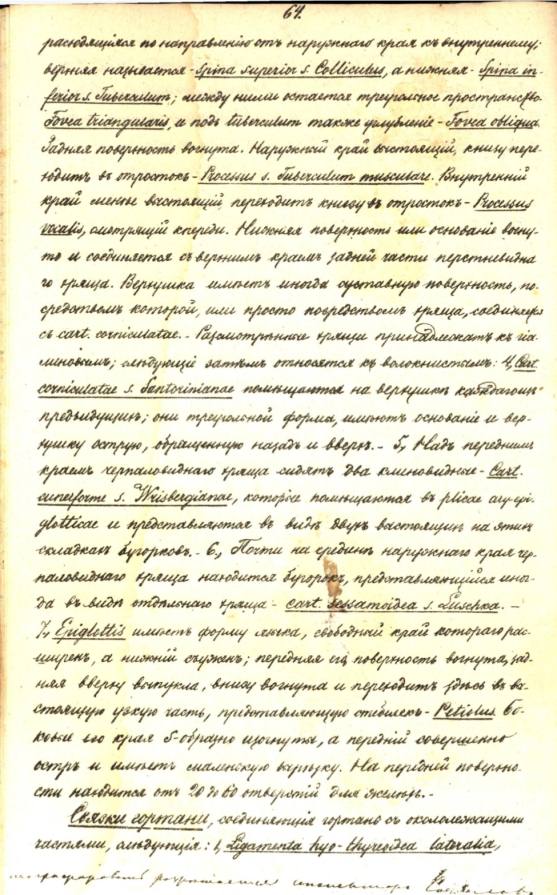 64.
расходящіяся по направленію отъ наружнаго края къ внутреннему;
верхняя называется - Spina superior s. Colliculus, а нижняя - Spina in-
ferior s. Tuberculum; между ними остается треугольное пространство
Fovea triangularis, и подъ tuberculum также углубленіе - Fovea obliqua.
Задняя поверхность вогнута. Наружный край выстоящій, книзу пере-
ходитъ въ отростокъ - Processus s. Tuberculum musculare. Внутренній
край менѣе выстоящій переходитъ книзу въ отростокъ - Processus
vocalis, смотрящій кпереди. Нижняя поверхность или основаніе вогну-
то и соединяется съ верхнимъ краемъ задней части перстневидна-
го хряща. Верхушка имѣетъ иногда суставную поверхность, по-
средствомъ которой, или просто посредствомъ хряща, соединяется
съ cart. corniculatae. - Разсмотрѣнные хрящи принадлежатъ къ гіа-
линовымъ; слѣдующіе затѣмъ относятся къ волокнистымъ: 4, Cart.
corniculatae s. Santorinianae помѣщаются на верхушкѣ каждаго изъ
предыдущихъ; они треугольной формы, имѣютъ основаніе и вер-
хушку острую, обращенную назадъ и вверхъ. - 5, Надъ переднимъ
краемъ черпаловиднаго хряща сидятъ два клиновидные - Cart.
cuneiforme s. Wrisbergianae, которые помѣщаются въ plicae ary-epi-
glotticae и представляются въ видѣ двухъ выстоящихъ на этихъ
складкахъ бугорковъ. - 6, Почти на срединѣ наружнаго края чер-
паловиднаго хряща находится бугорокъ, представляющійся иног-
да въ видѣ отдѣльнаго хряща - cart. sessamoidea s. Luschka. -
7, Epiglottis имѣетъ форму языка, свободный край котораго рас-
ширенъ, а нижній съуженъ; передняя его поверхность вогнута, зад-
няя вверху выпукла, внизу вогнута и переходитъ здѣсь въ вы-
стоящую узкую часть, представляющую стебелекъ - Petiolus. Бо-
ковые его края S-образно изогнуты, а передній совершенно
остръ и имѣетъ маленькую вырѣзку. На передней поверхно-
сти находится отъ 20 до 60 отверстій для железъ. -
Связки гортани, соединяющія гортань съ околележащими
частями, слѣдующія: 1, Ligamenta hyo-thyreoidea lateralia,